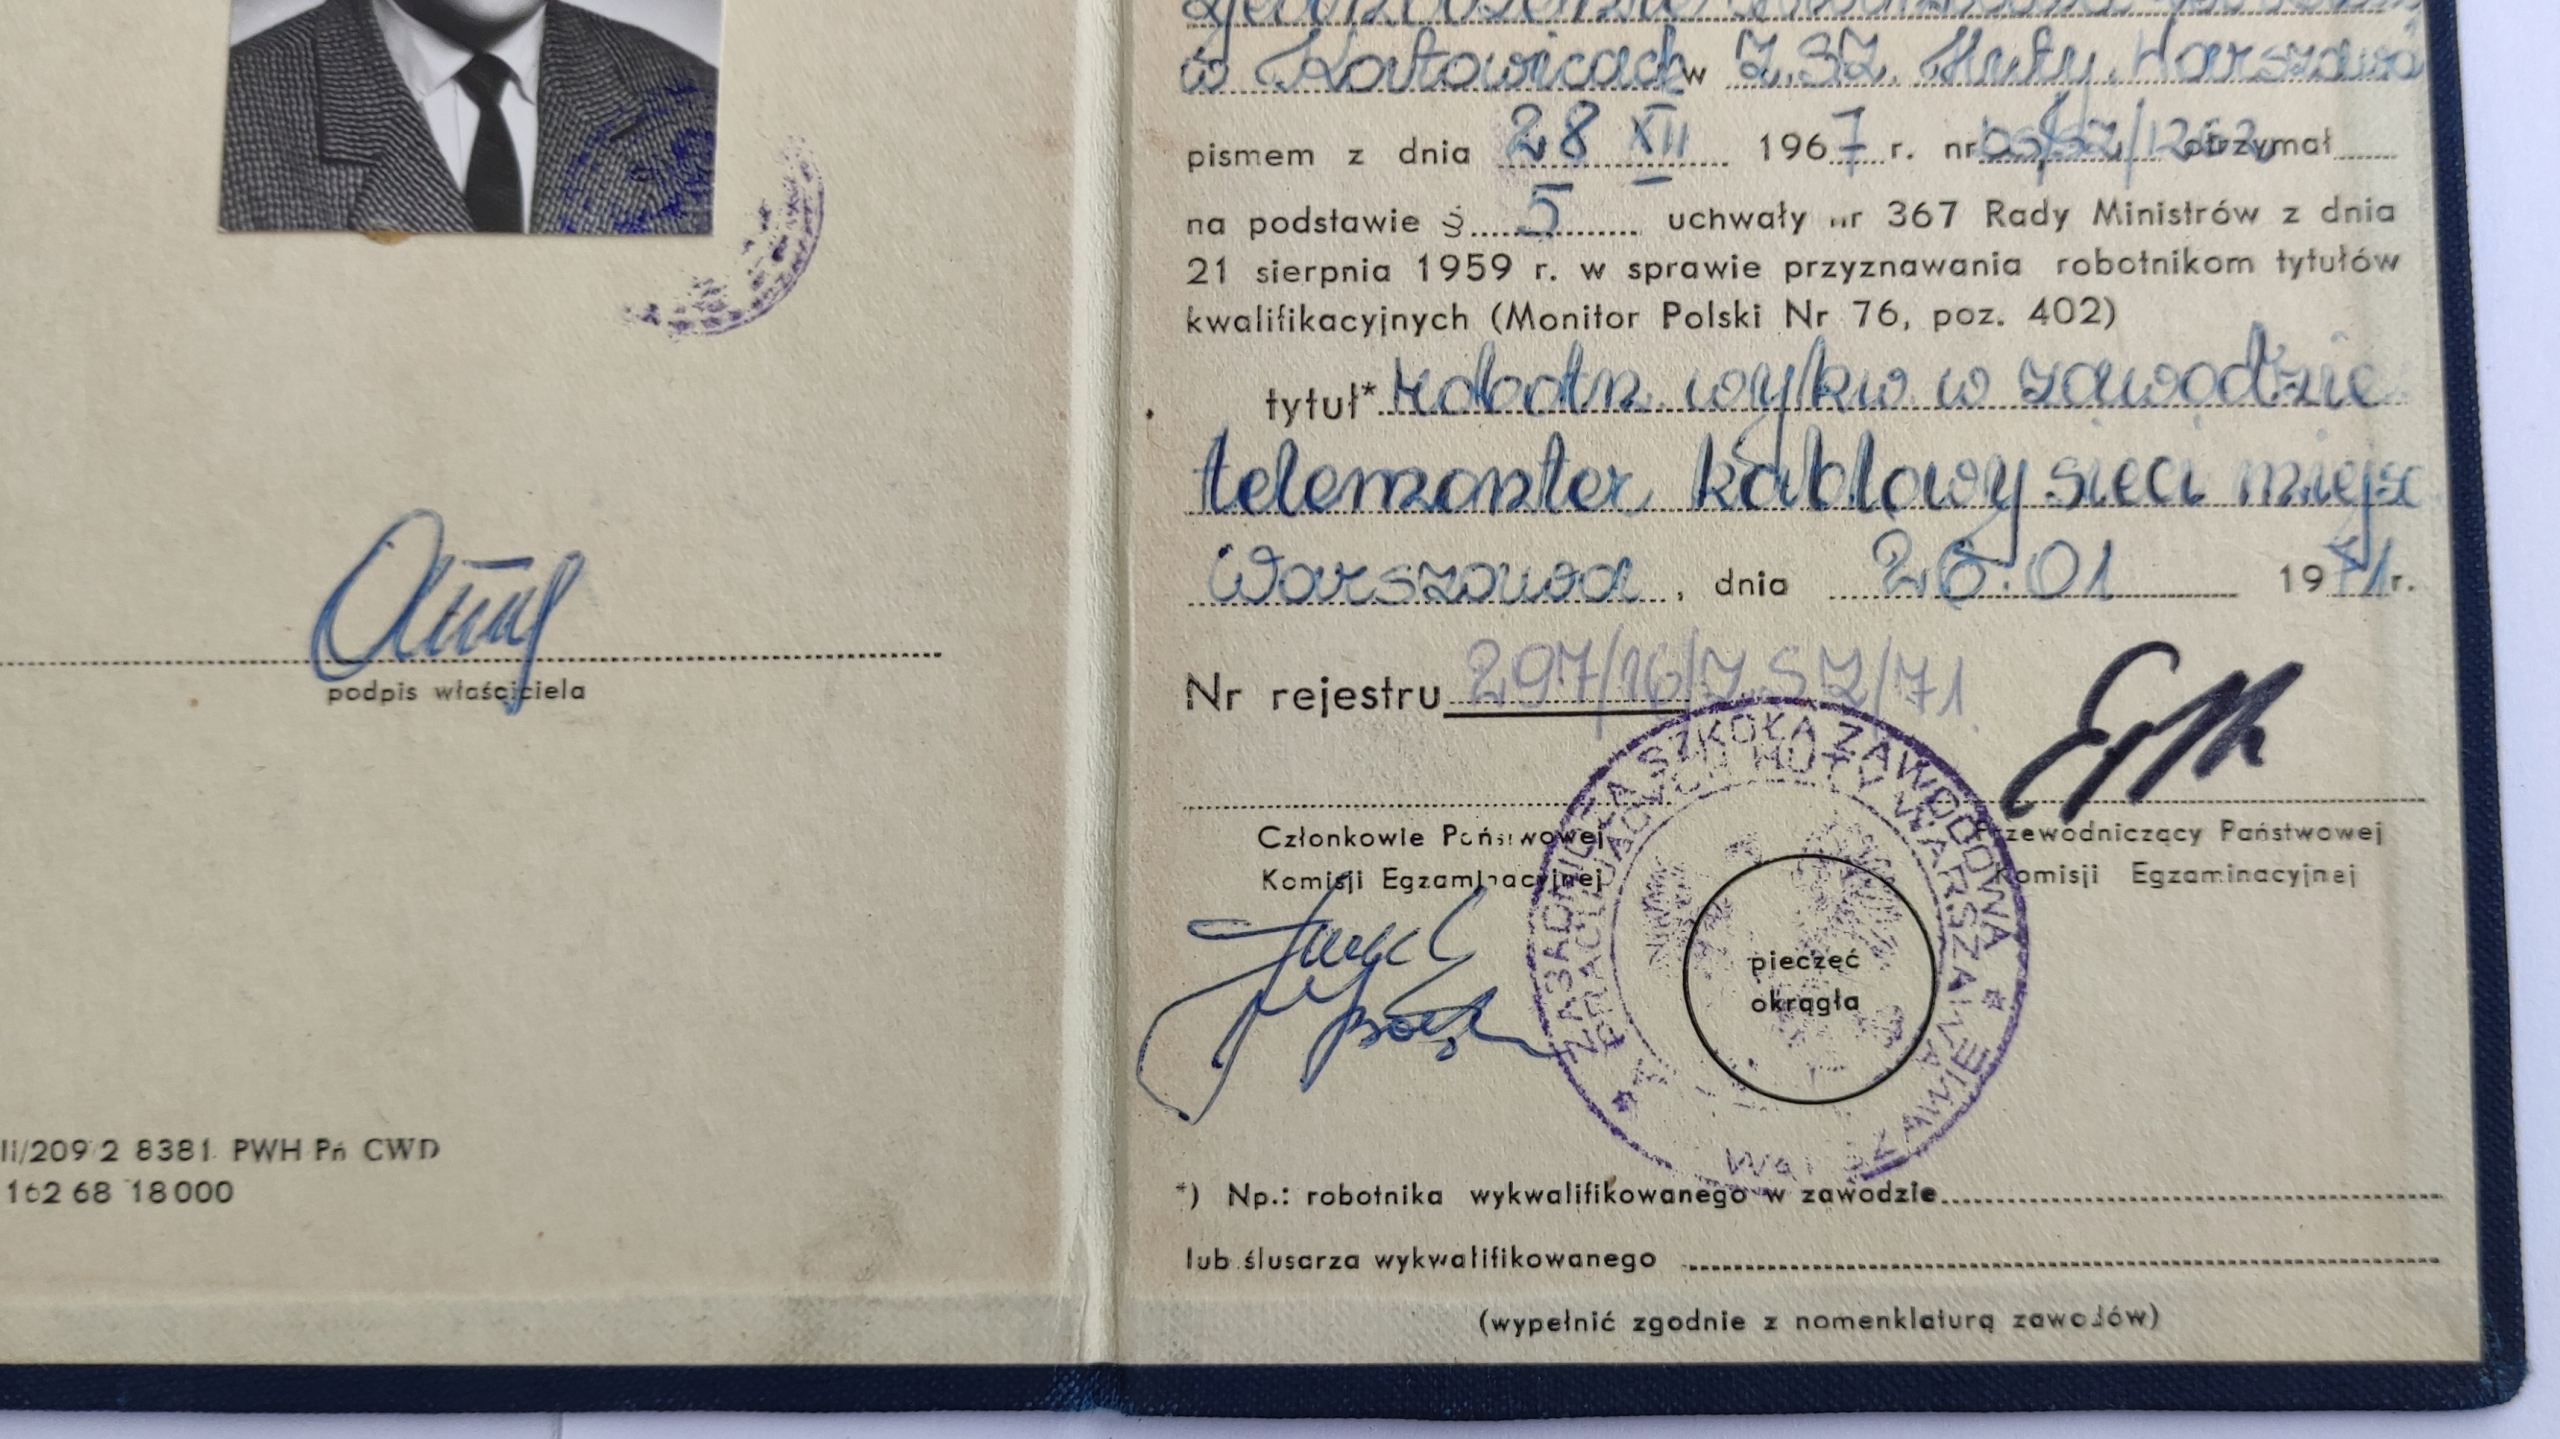 w Katowicach w Z.SZ. Huty Warszawa
pismem z dnia 28 XII 1967 r. nr otrzymał
na podstawie § 5 uchwały nr 367 Rady Ministrów z dnia
21 sierpnia 1959 r. w sprawie przyznawania robotnikom tytułów
kwalifikacyjnych (Monitor Polski Nr 76, poz. 402)
tytuł* robotn. wykw w zawodzie
telemonter kablowy sieci miejsc
Warszawa, dnia 26.01 1971 r.
Nr rejestru 297/16/Z.SZ/71.
podpis właściciela
Członkowie Państwowej
Komisji Egzaminacyjnej
Przewodniczący Państwowej
Komisji Egzaminacyjnej
ZASADNICZA SZKOŁA ZAWODOWA
PRACUJĄCYCH HUTY WARSZAWA
W WARSZAWIE
pieczęć
okrągła
II/209 2 8381 PWH Pń CWD
162 68 18000
*) Np.: robotnika wykwalifikowanego w zawodzie
lub ślusarza wykwalifikowanego
(wypełnić zgodnie z nomenklaturą zawodów)